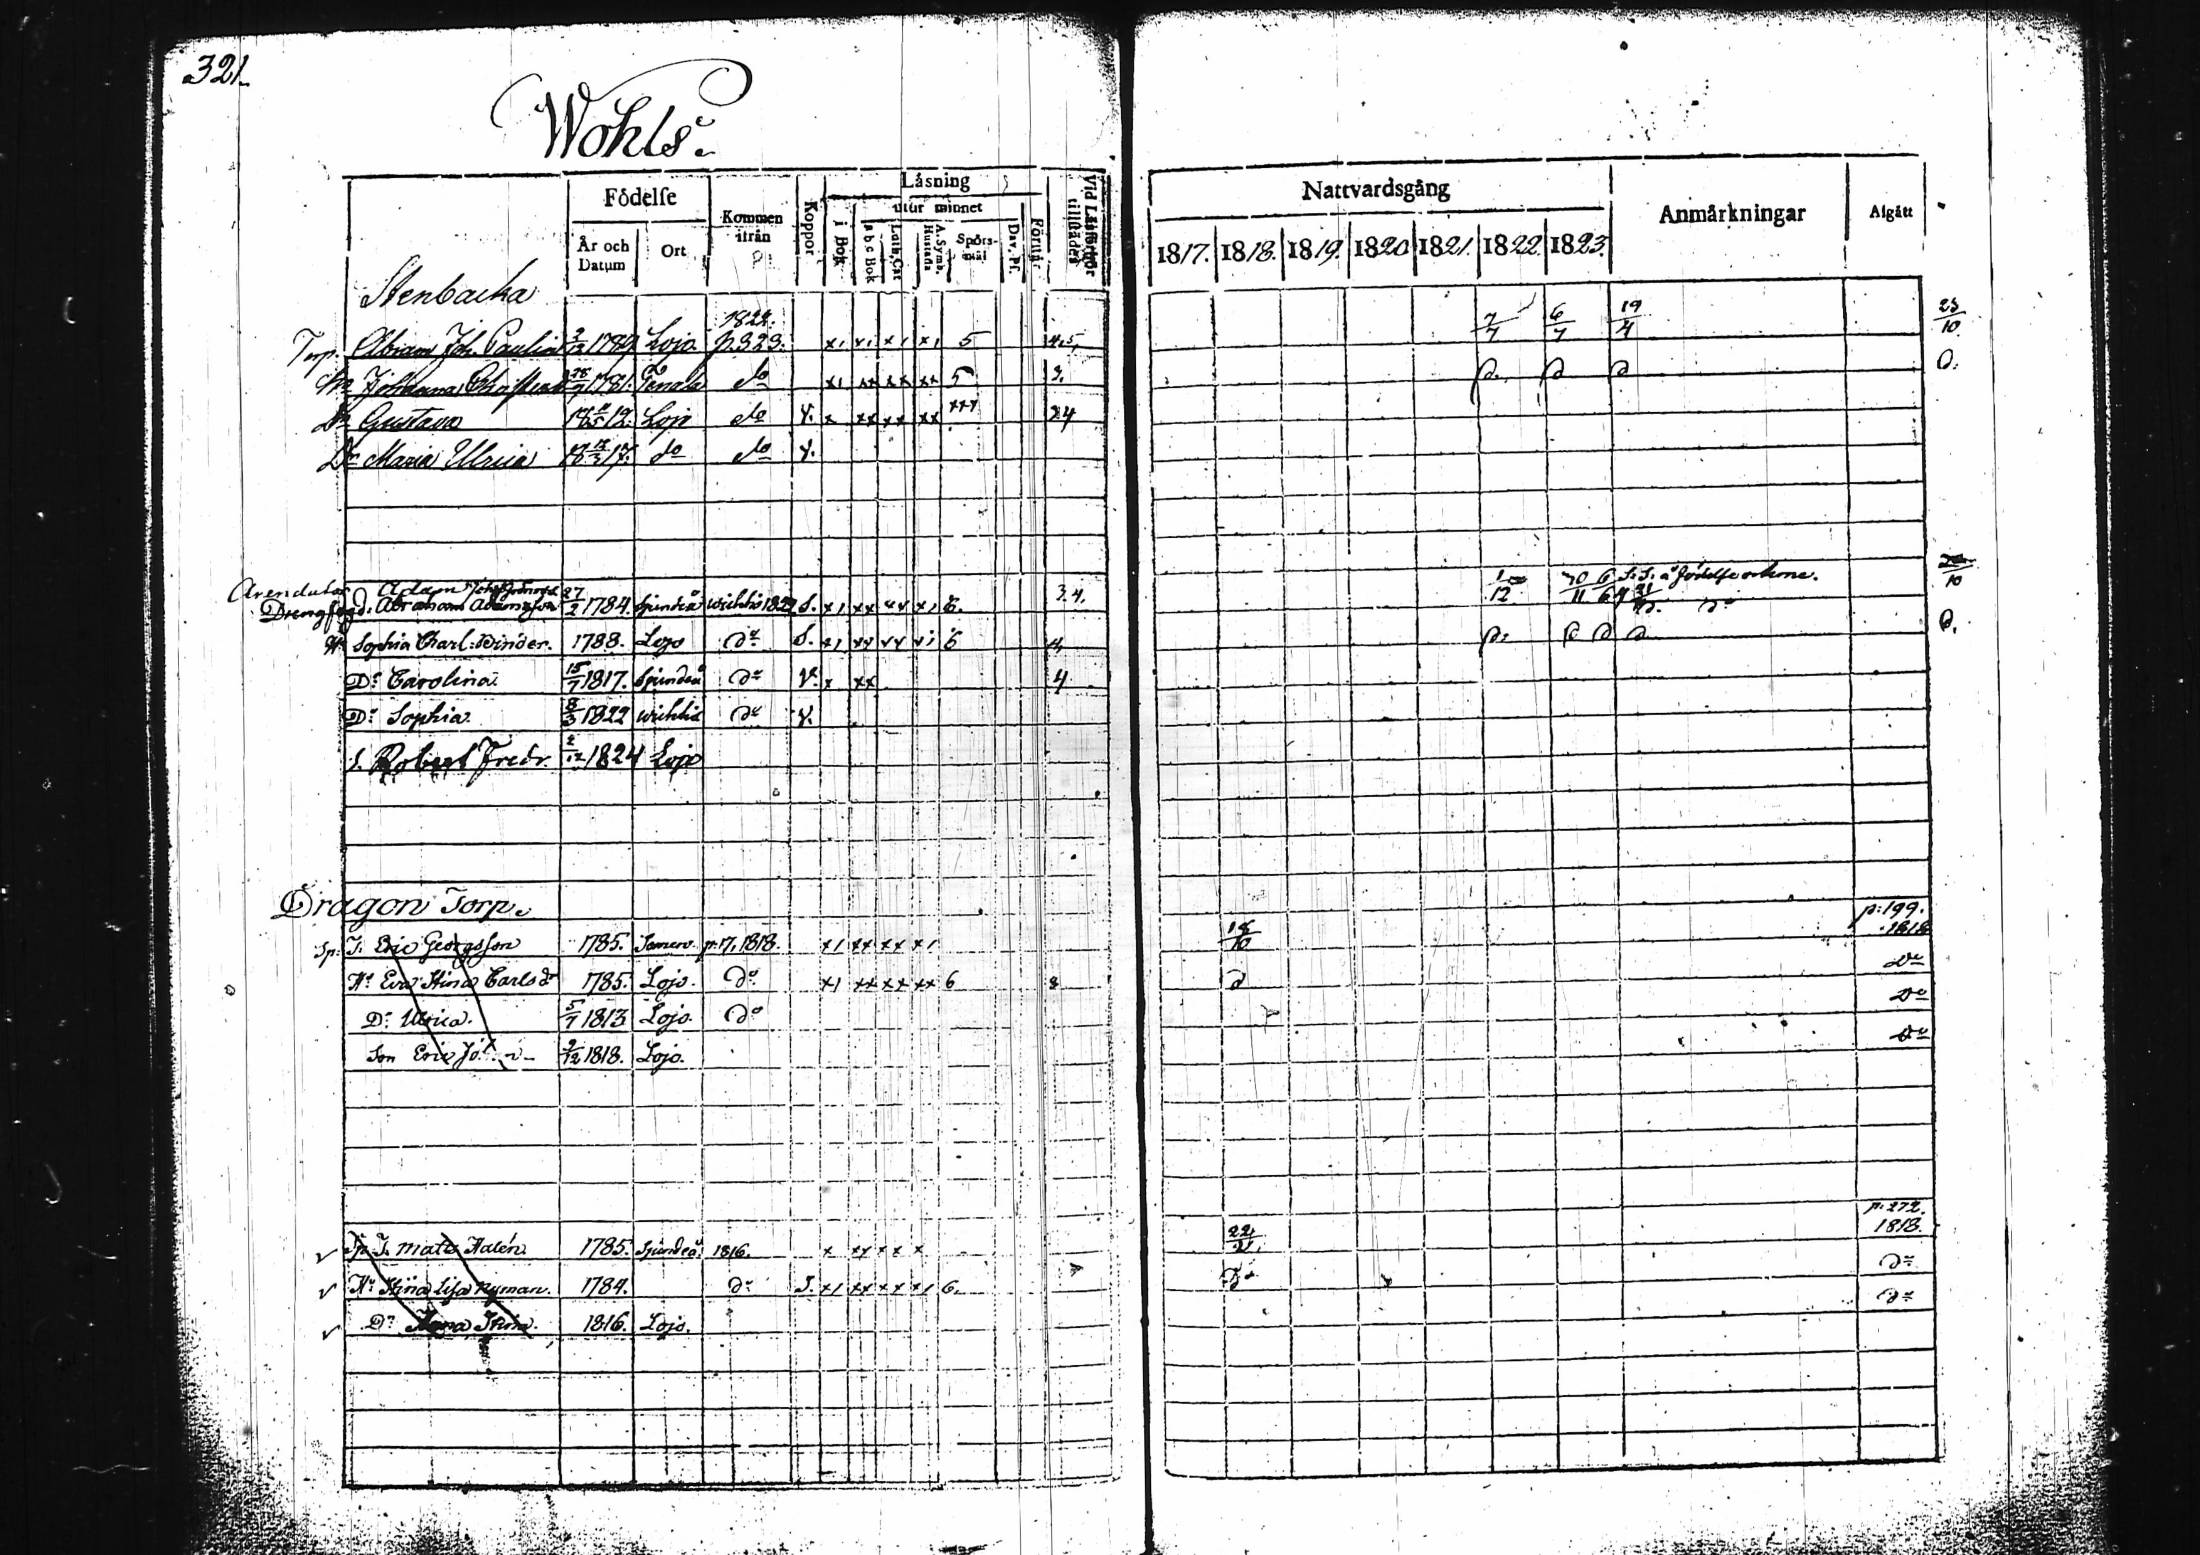 321.
Wohls.
Födelse
Kommen ifrån
Koppor
Läsning
Vid Läsförhör tillstädes
År och Datum
Ort
i Bok
utur minnet
a b c Bok
Luth. Cat
A. Symb. Hustafla
Spörsmål
Dav. Ps.
Förstår
Nattvardsgång
Anmärkningar
Afgått
1817. 1818. 1819. 1820 1821. 1822. 1823.
Stenbacka
Torp. Abram Joh. Paulin 1789 Lojo 1822. p. 323. x1 x1 x1 x1 5 4,5, 7/7 6/7 19/4 23/10
Johanna 1781. Tenala do x1 xx xx xx 5 3. d. d d d.
Gustava 18 12. Lojo do V. x xx xx xx xxx 24
Dr Maria Ulrica 18 17. do do V.
Arendator Adam
Drengfogd. Abraham Adamsson 27/2 1784. Sjundeå Wichtis 1822 S. x1 xx xx x1 6. 3.4. 12. S. S. å födelse ortene.
Hu Sophia Charl: Winder. 1788. Lojo do S. x1 xx xx x1 6 4, d. d d d d.
Dr Carolina 15/7 1817. Sjundeå do V. x xx 4
Dr Sophia 8/3 1822 Wichtis do V.
S. Robert Fredr. 2/12 1824 Lojo
Dragon Torp.
Sp: T. Eric Georgsson 1785. Somero p. 17, 1818. x1 xx xx x1 18/10 p: 199. 1818
Hu Eva Stina Carlsdr 1785. Lojo. do x1 xx xx xx 6 8 d do
Dr Ulrica. 5/7 1813 Lojo. do do
Son Eric 9/12 1818. Lojo. do
Sp. T. Matts Halén 1785. Sjundeå 1816. x xx x x 22 p: 272. 1818.
Hu Stina Lisa Nyman. 1784. do S. x1 xx xx x1 6. do do
Dr Anna Stina 1816. Lojo. do